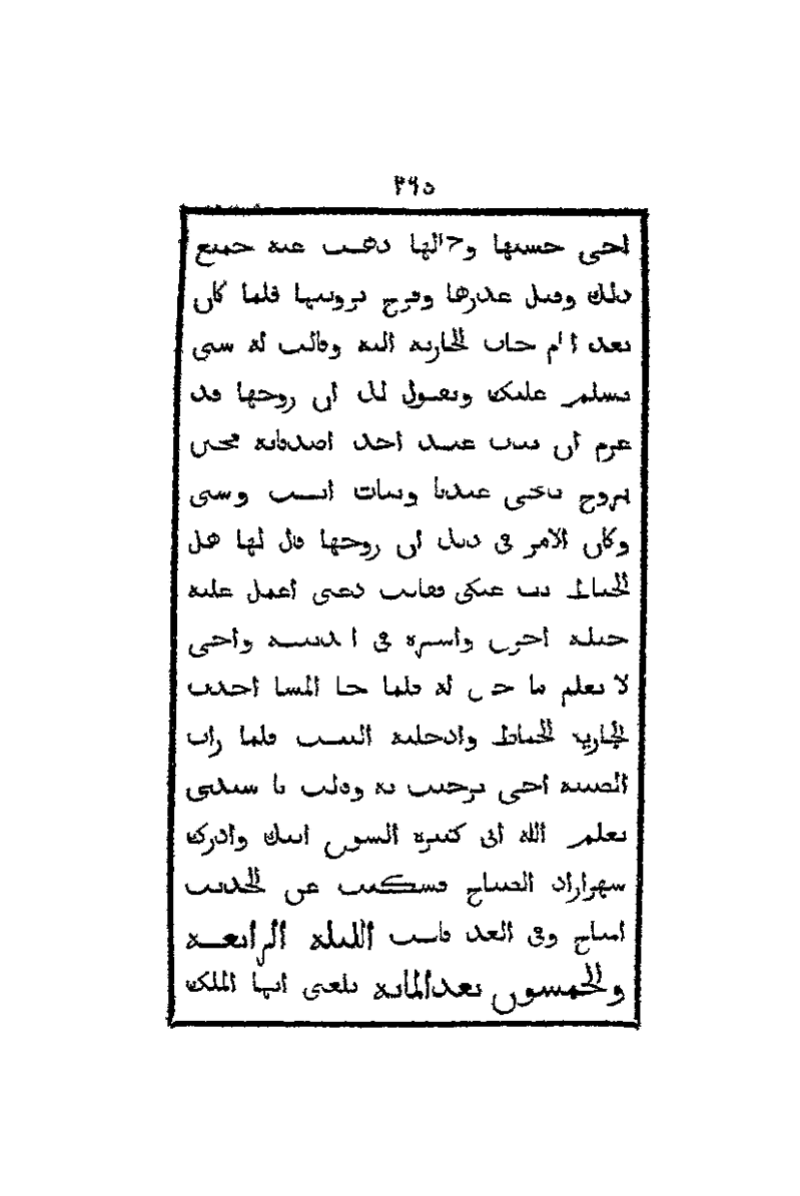 اخى حسنها وجمالها ذهب عنه جميع
ذلك وقبل عذرها وفرح برويتها فلما كان
بعد ايام جات الجارية اليه وقالت له ستى
تسلم عليك وتقول لك ان زوجها قد
عزم ان يبيت عند احد اصدقايه فحين
يروح تجى عندنا وتبات انت وستى
وكان الامر فى ان زوجها قال لها هل
الخياط تاب عنكى فقالت دعنى اعمل عليه
حيلة اخرى واشهره فى المدينة واخى
لا يعلم ما جرى له فلما جا المسا اخذت
الجارية الخياط وادخلته البيت فلما رات
الصبية اخى ترحبت به وقالت يا سيدى
يعلم الله انى كثيرة الشوق اليك وادرك
شهرازاد الصباح فسكتت عن الحديث
المباح وفى الغد قالت الليلة الرابعة
والخمسون بعد الماية بلغنى ايها الملك